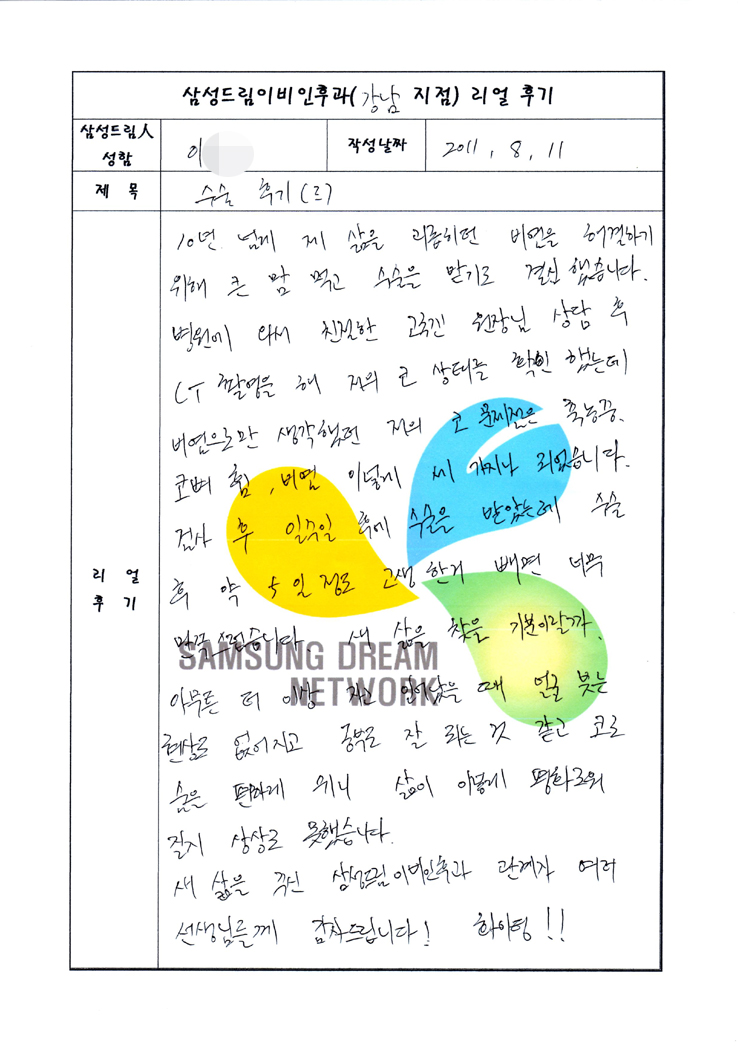 삼성드림이비인후과(강남 지점) 리얼 후기
삼성드림人
성함
이
작성날짜
2011, 8, 11
제 목
수술 후기(코)
리 얼
후 기
10년 넘게 제 삶을 괴롭히던 비염을 해결하기
위해 큰 맘 먹고 수술을 받기로 결심 했습니다.
병원에 와서 친절한 원장님 상담 후
CT 촬영을 해 저의 코 상태를 확인 했는데
비염으로만 생각했던 저의 코 문제점은 축농증.
코뼈 휨, 비염 이렇게 세 가지나 되었습니다.
검사 후 일주일 후에 수술을 받았는데 수술
후 약 5일 정도 고생 한거 빼면 너무
만족스럽습니다 새 삶을 찾을 기분이랄까.
아무튼 더 이상 자고 일어났을 때 얼굴 붓는
현상도 없어지고 공부도 잘 되는 것 같고 코로
숨을 편하게 쉬니 삶이 이렇게 평화로워
질지 상상도 못했습니다.
새 삶을 주신 삼성드림이비인후과 관계자 여러
선생님들께 감사드립니다! 화이팅!!
SAMSUNG DREAM
NETWORK